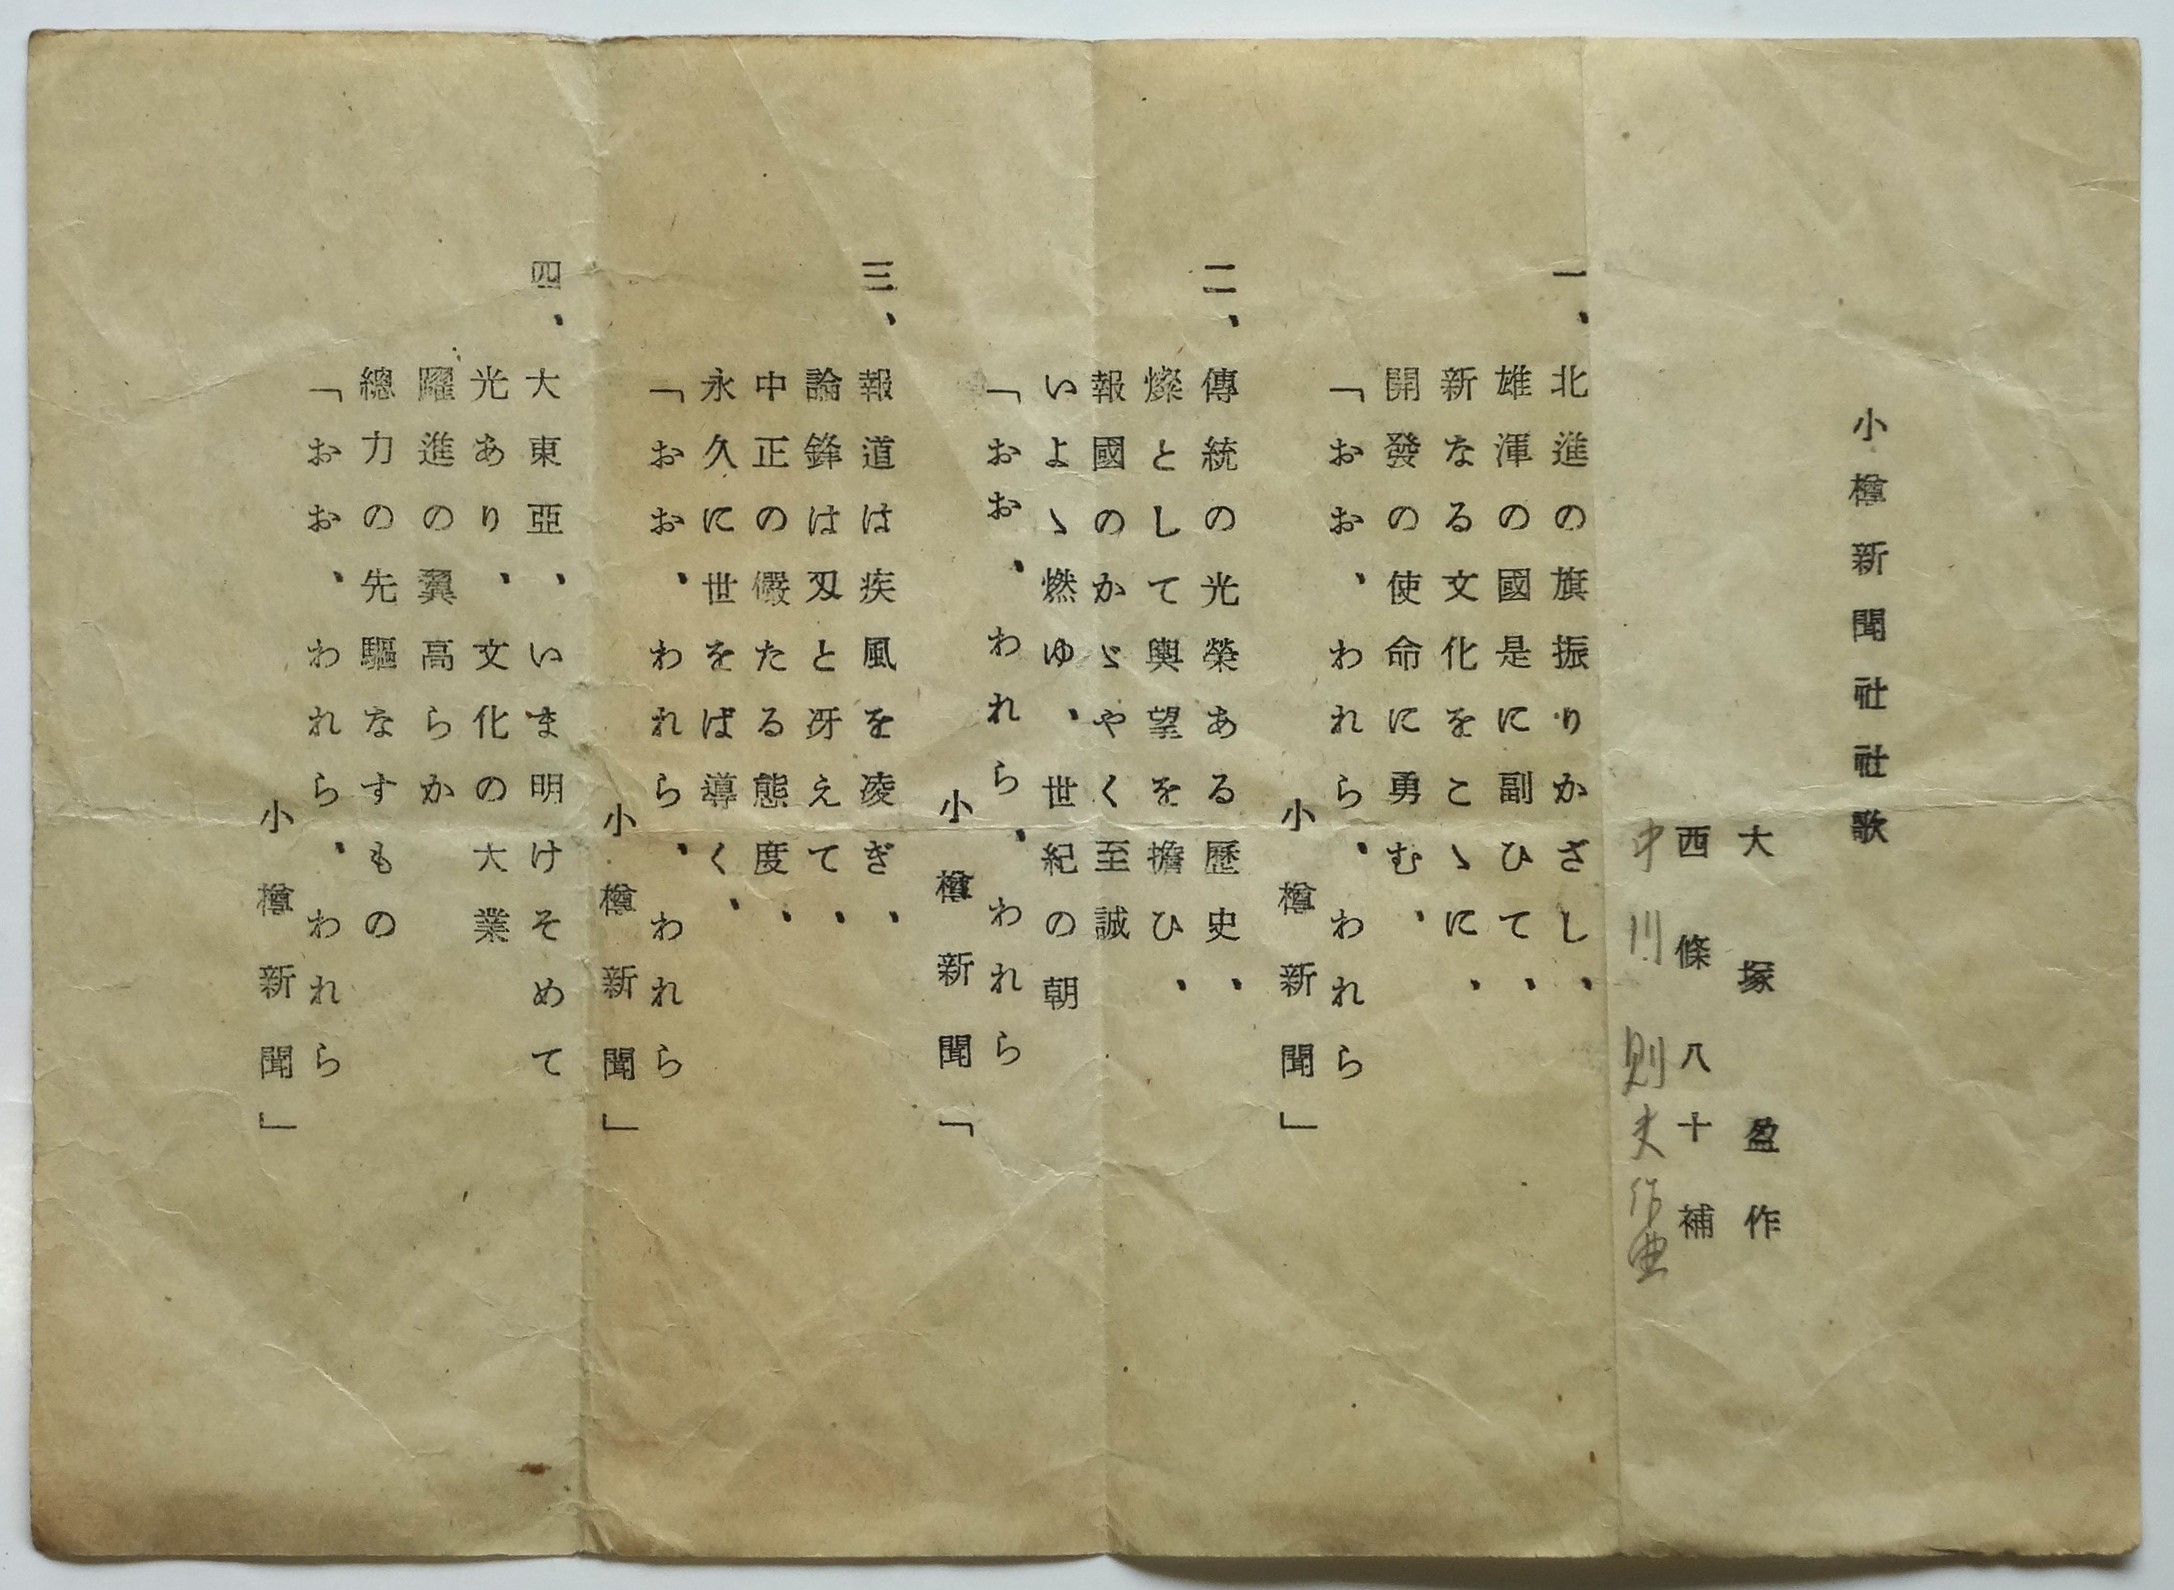 小樽新聞社社歌
大塚盈作
西條八十補
中川則夫作曲
一、北進の旗振りかざし、
雄渾の國是に副ひて、
新なる文化をこゝに、
開發の使命に勇む、
「おお、われら、われら
小樽新聞」
二、傳統の光榮ある歷史、
燦として輿望を擔ひ、
報國のかゞやく至誠
いよゝ燃ゆ、世紀の朝
「おお、われら、われら
小樽新聞「
三、報道は疾風を凌ぎ、
論鋒は刄と冴えて、
中正の儼たる態度、
永久に世をば導く、
「おお、われら、われら
小樽新聞」
四、大東亞、いま明けそめて
光あり、文化の大業
躍進の翼高らか
總力の先驅なすもの
「おお、われら、われら
小樽新聞」